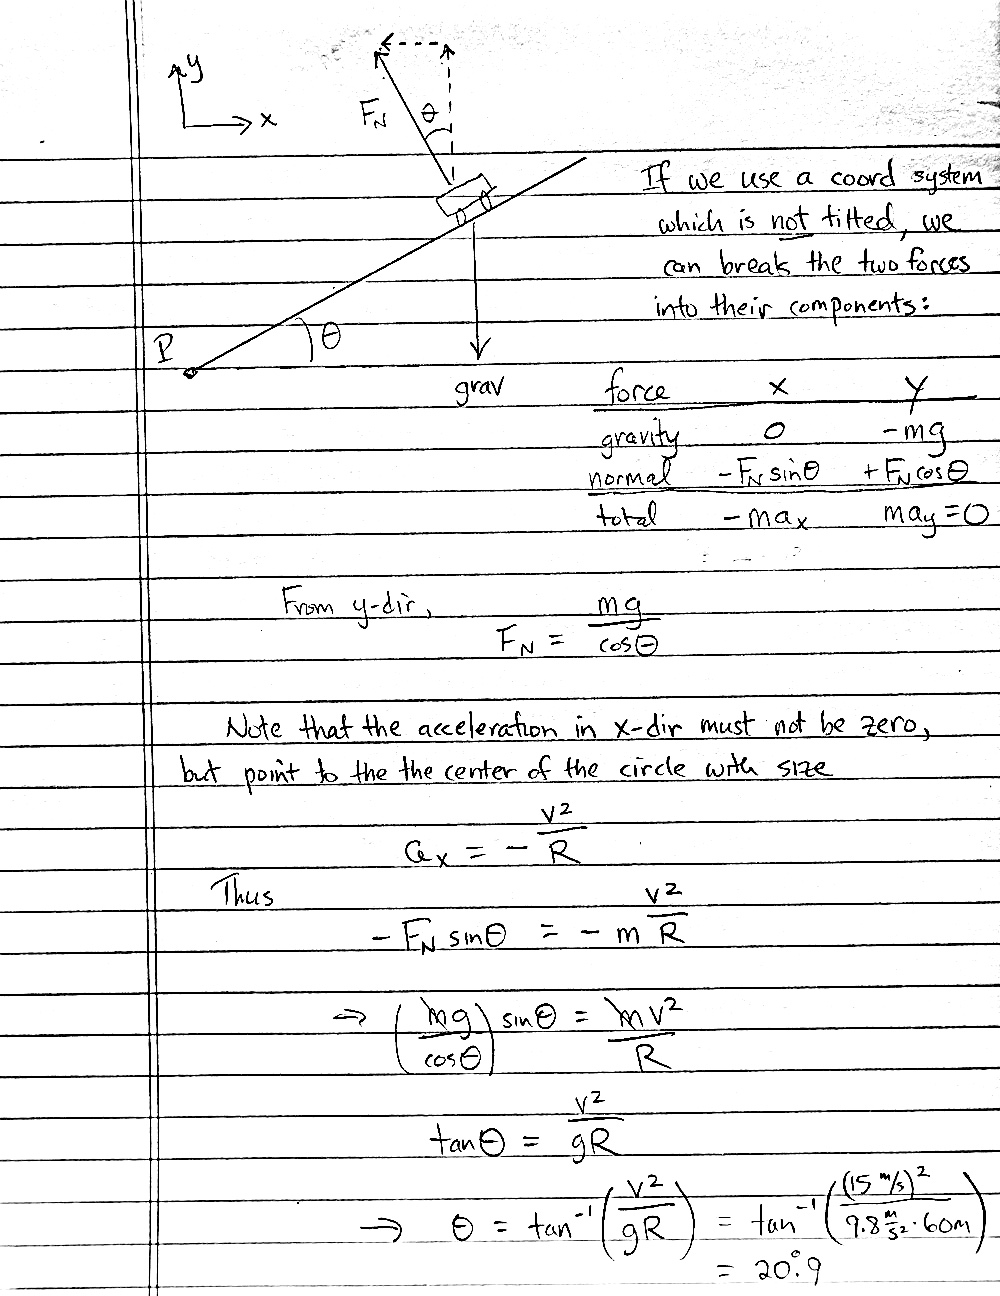 y
x
F_N
θ
P
θ
grav
If we use a coord system
which is not tilted, we
can break the two forces
into their components:
force x y
gravity 0 -mg
normal -F_N sinθ +F_N cosθ
total -ma_x ma_y=0
From y-dir,
F_N = mg/cosθ
Note that the acceleration in x-dir must not be zero,
but point to the the center of the circle with size
a_x = - v²/R
Thus
- F_N sinθ = - m v²/R
⇒ (mg/cosθ) sinθ = mv²/R
tanθ = v²/gR
⇒ θ = tan⁻¹(v²/gR) = tan⁻¹((15 m/s)²/9.8 m/s² · 60m)
= 20°.9